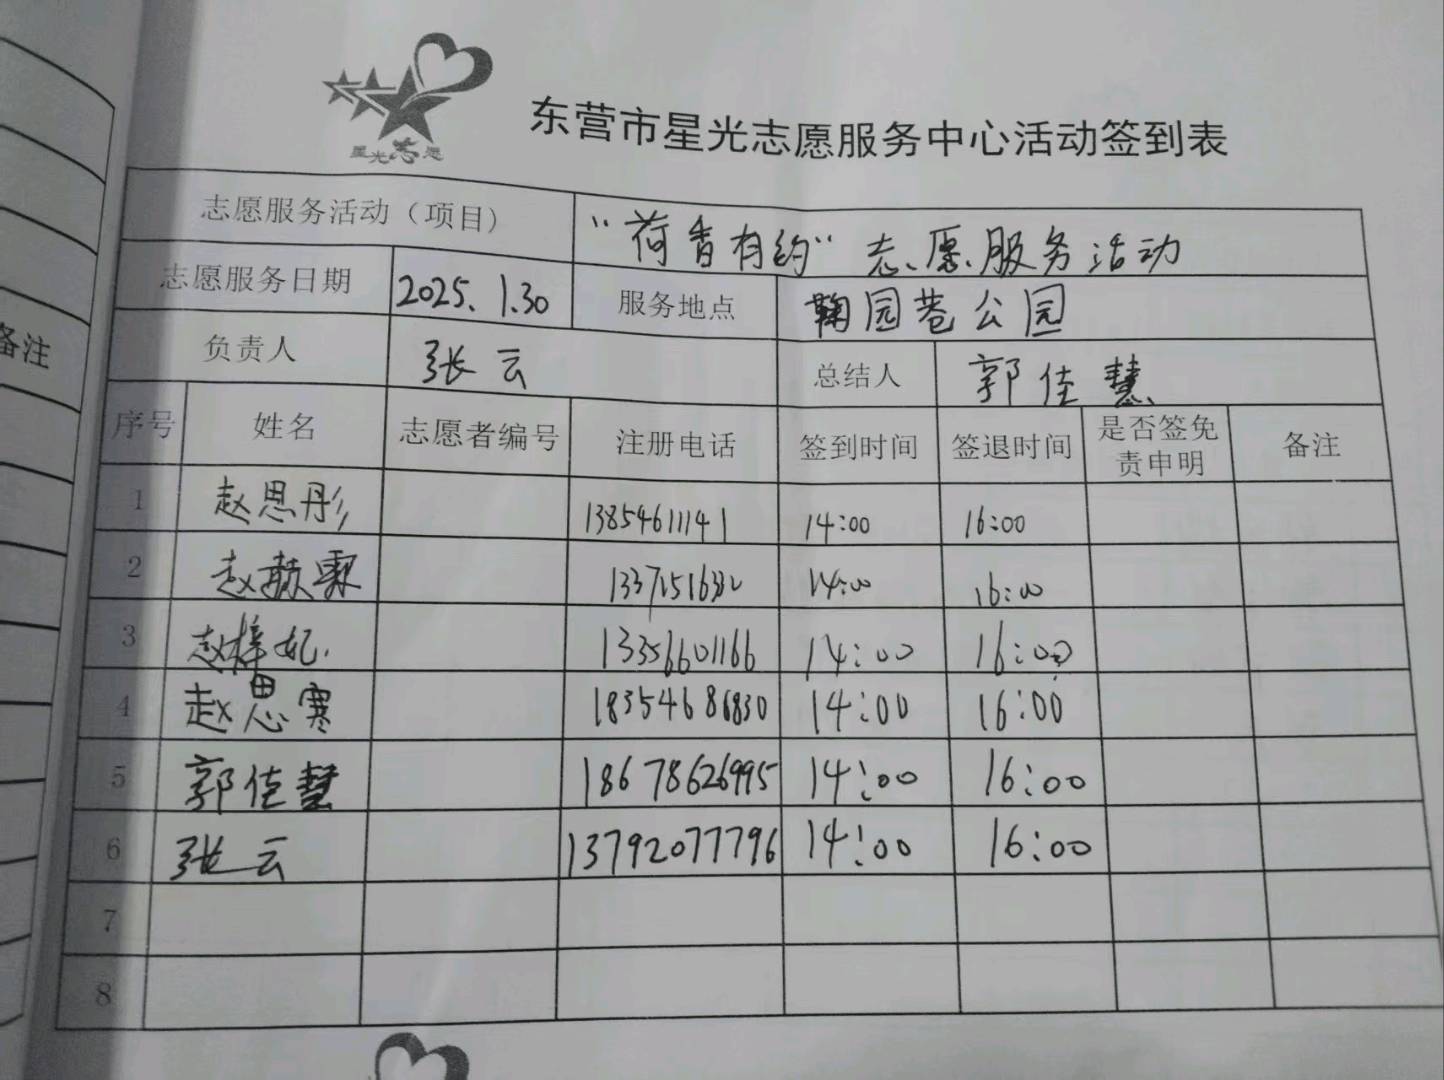 备注
星光志愿
东营市星光志愿服务中心活动签到表
志愿服务活动（项目） “荷香有约”志愿服务活动
志愿服务日期 2025.1.30 服务地点 鞠园巷公园
负责人 张云 总结人 郭佳慧
序号 姓名 志愿者编号 注册电话 签到时间 签退时间 是否签免责申明 备注
1 赵思彤 13854611141 14:00 16:00
2 14:00 16:00
3 赵梓妃 13356601166 14:00 16:00
4 赵思寒 18354686830 14:00 16:00
5 郭佳慧 18678626995 14:00 16:00
6 张云 13792077796 14:00 16:00
7
8